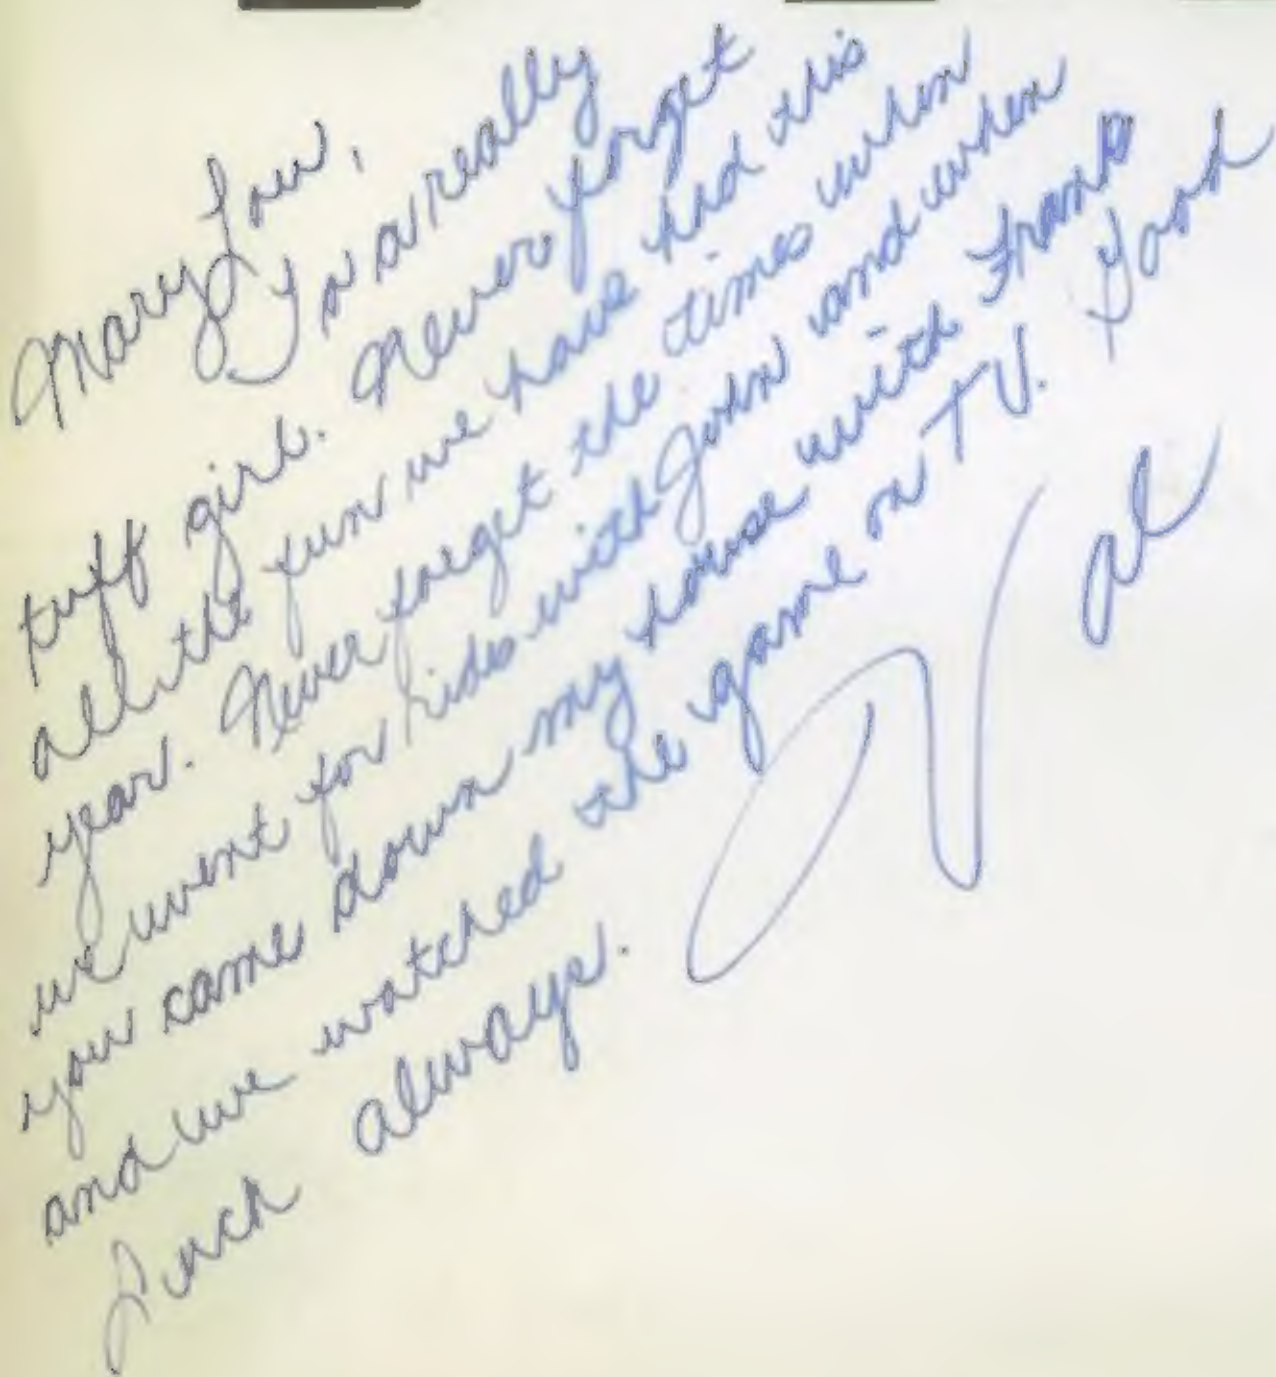 Mary Lou,
To a really
tuff girl. Never forget
all the fun we have had this
year. Never forget the times when
we went for rides with John and when
you came down my house with Frank
and we watched the game on TV. Good
Luck always.
Val